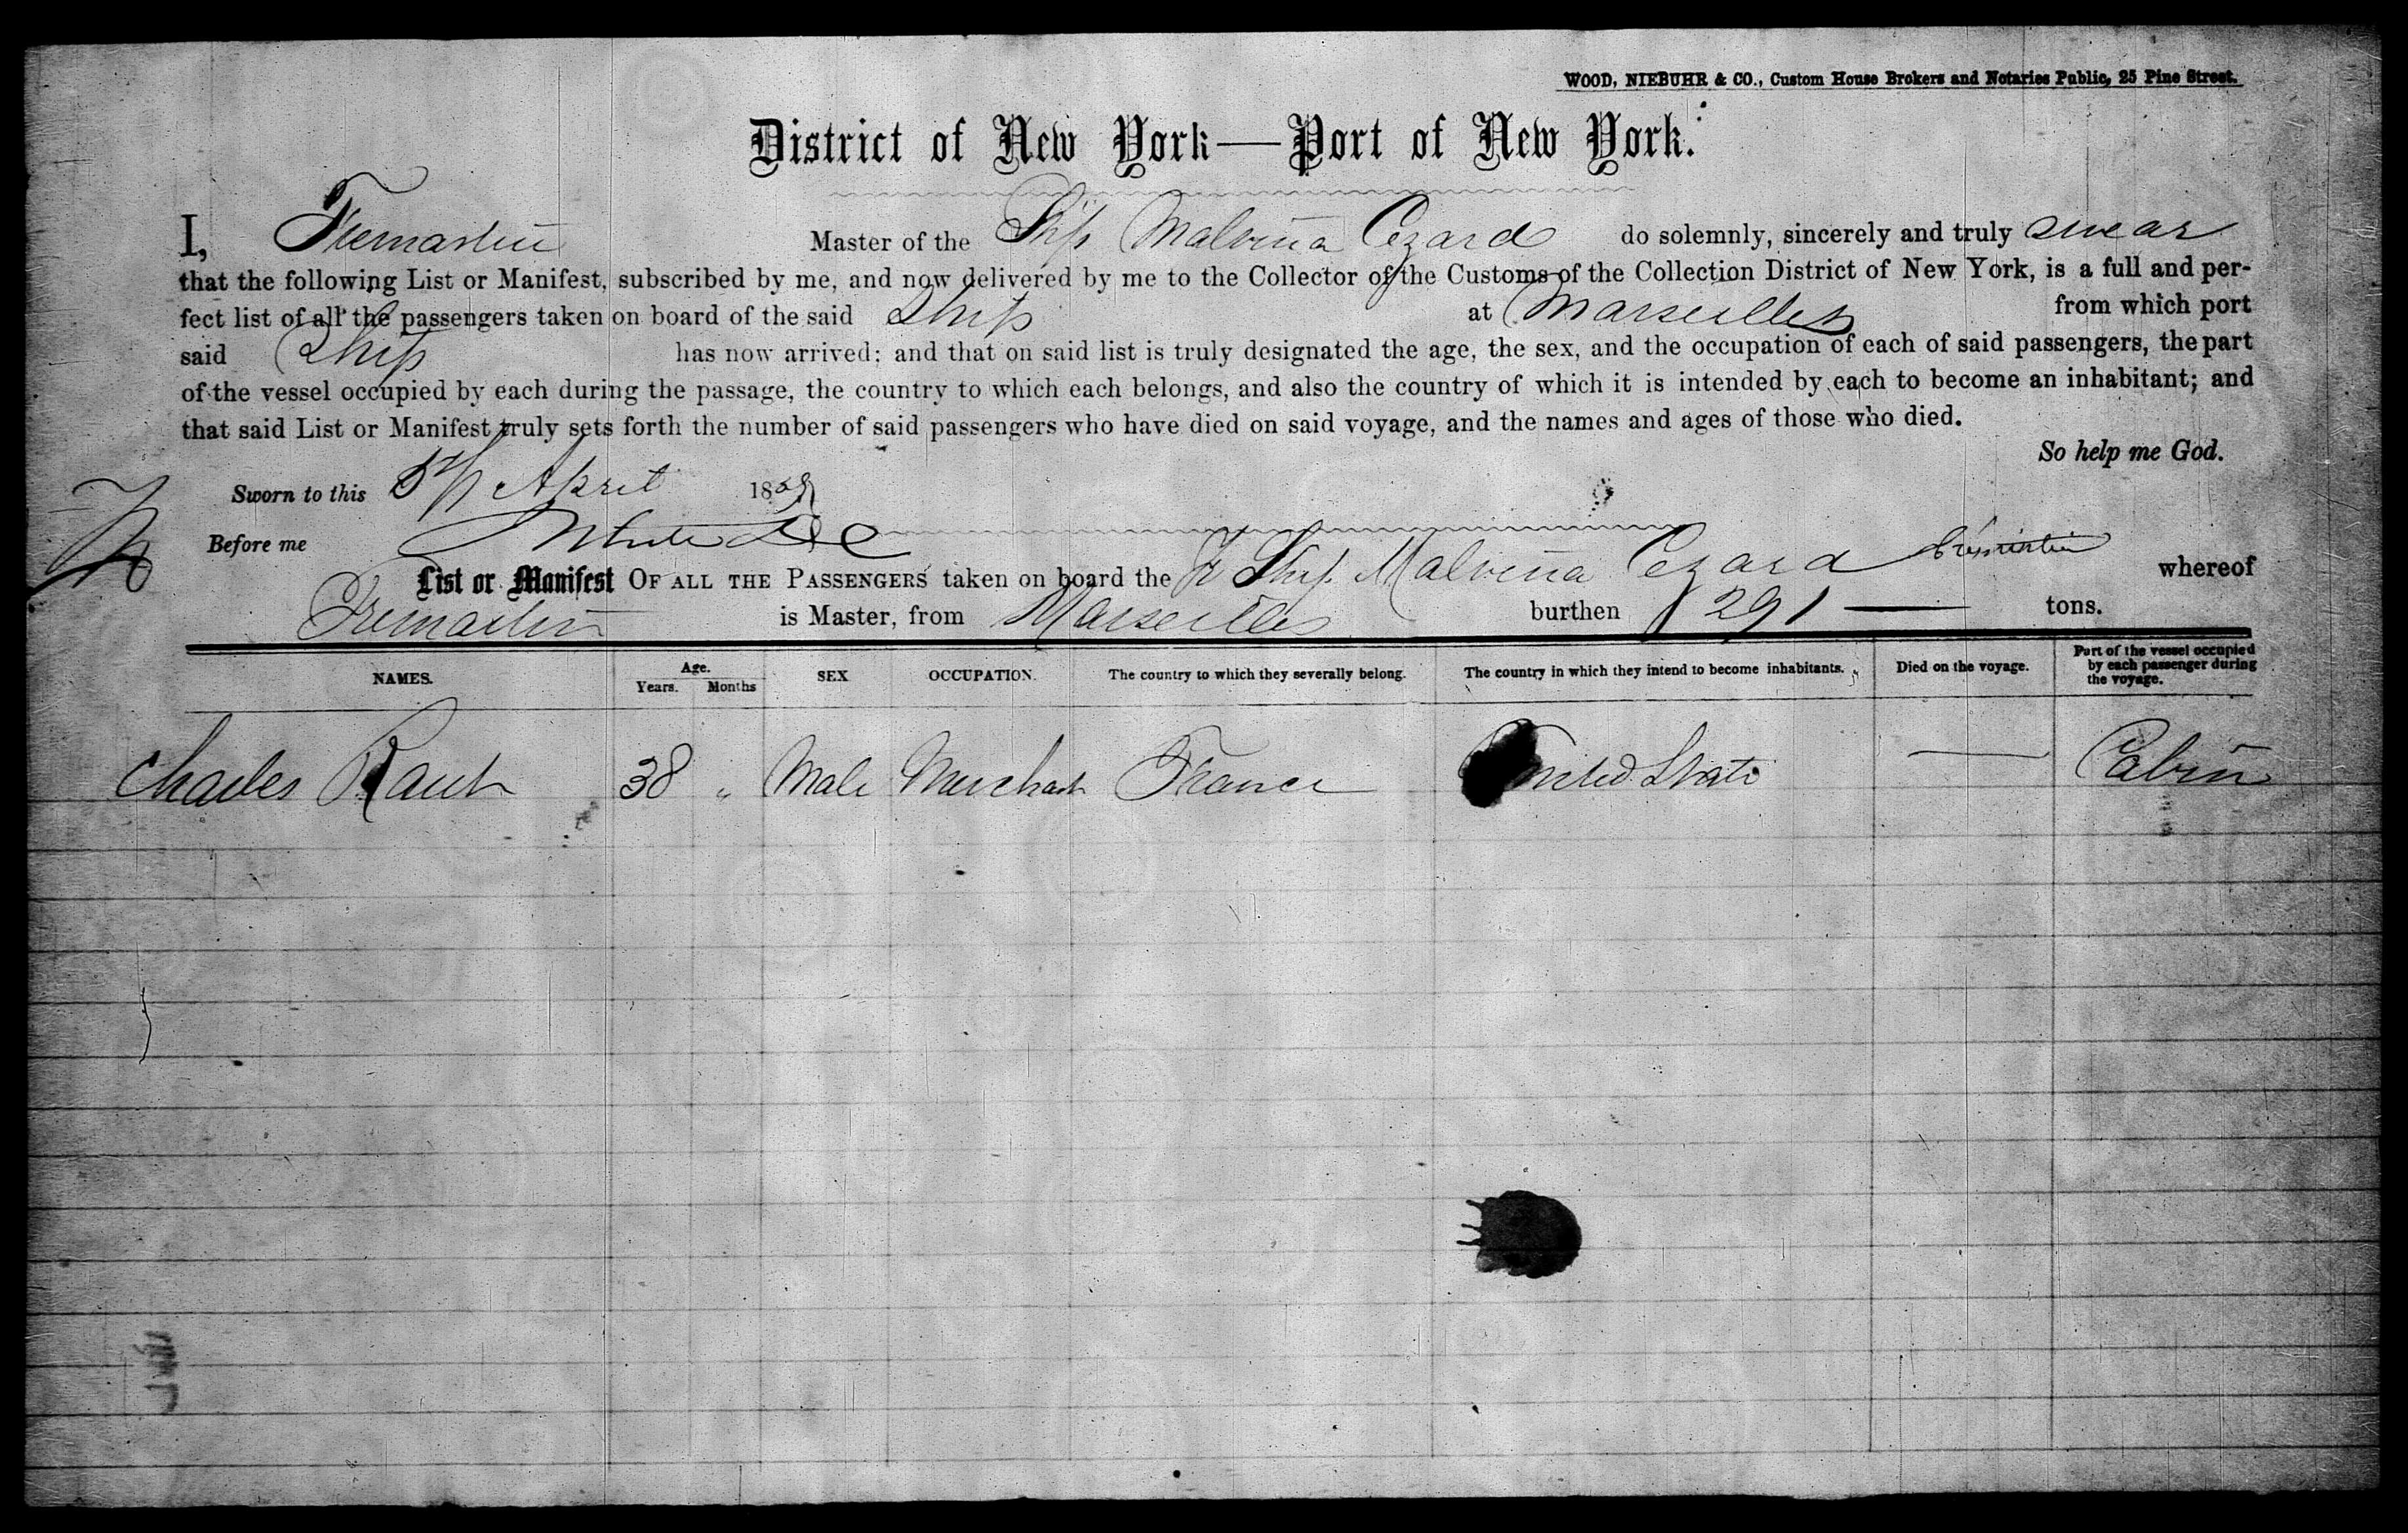 WOOD, NIEBUHR & CO., Custom House Brokers and Notaries Public, 25 Pine Street.
District of New York—Port of New York.
I, Fremartin Master of the Ship Malvina Cezard do solemnly, sincerely and truly swear
that the following List or Manifest, subscribed by me, and now delivered by me to the Collector of the Customs of the Collection District of New York, is a full and per-
fect list of all the passengers taken on board of the said Ship at Marseilles from which port
said Ship has now arrived; and that on said list is truly designated the age, the sex, and the occupation of each of said passengers, the part
of the vessel occupied by each during the passage, the country to which each belongs, and also the country of which it is intended by each to become an inhabitant; and
that said List or Manifest truly sets forth the number of said passengers who have died on said voyage, and the names and ages of those who died.
So help me God.
Sworn to this 5th April 185
Before me
List or Manifest OF ALL THE PASSENGERS taken on board the Fr Ship Malvina Cezard whereof
Fremartin is Master, from Marseilles burthen 291 — tons.
NAMES. Age. Years. Months SEX OCCUPATION. The country to which they severally belong. The country in which they intend to become inhabitants. Died on the voyage. Part of the vessel occupied by each passenger during the voyage.
Charles 38 " Male Merchant France United State — Cabin